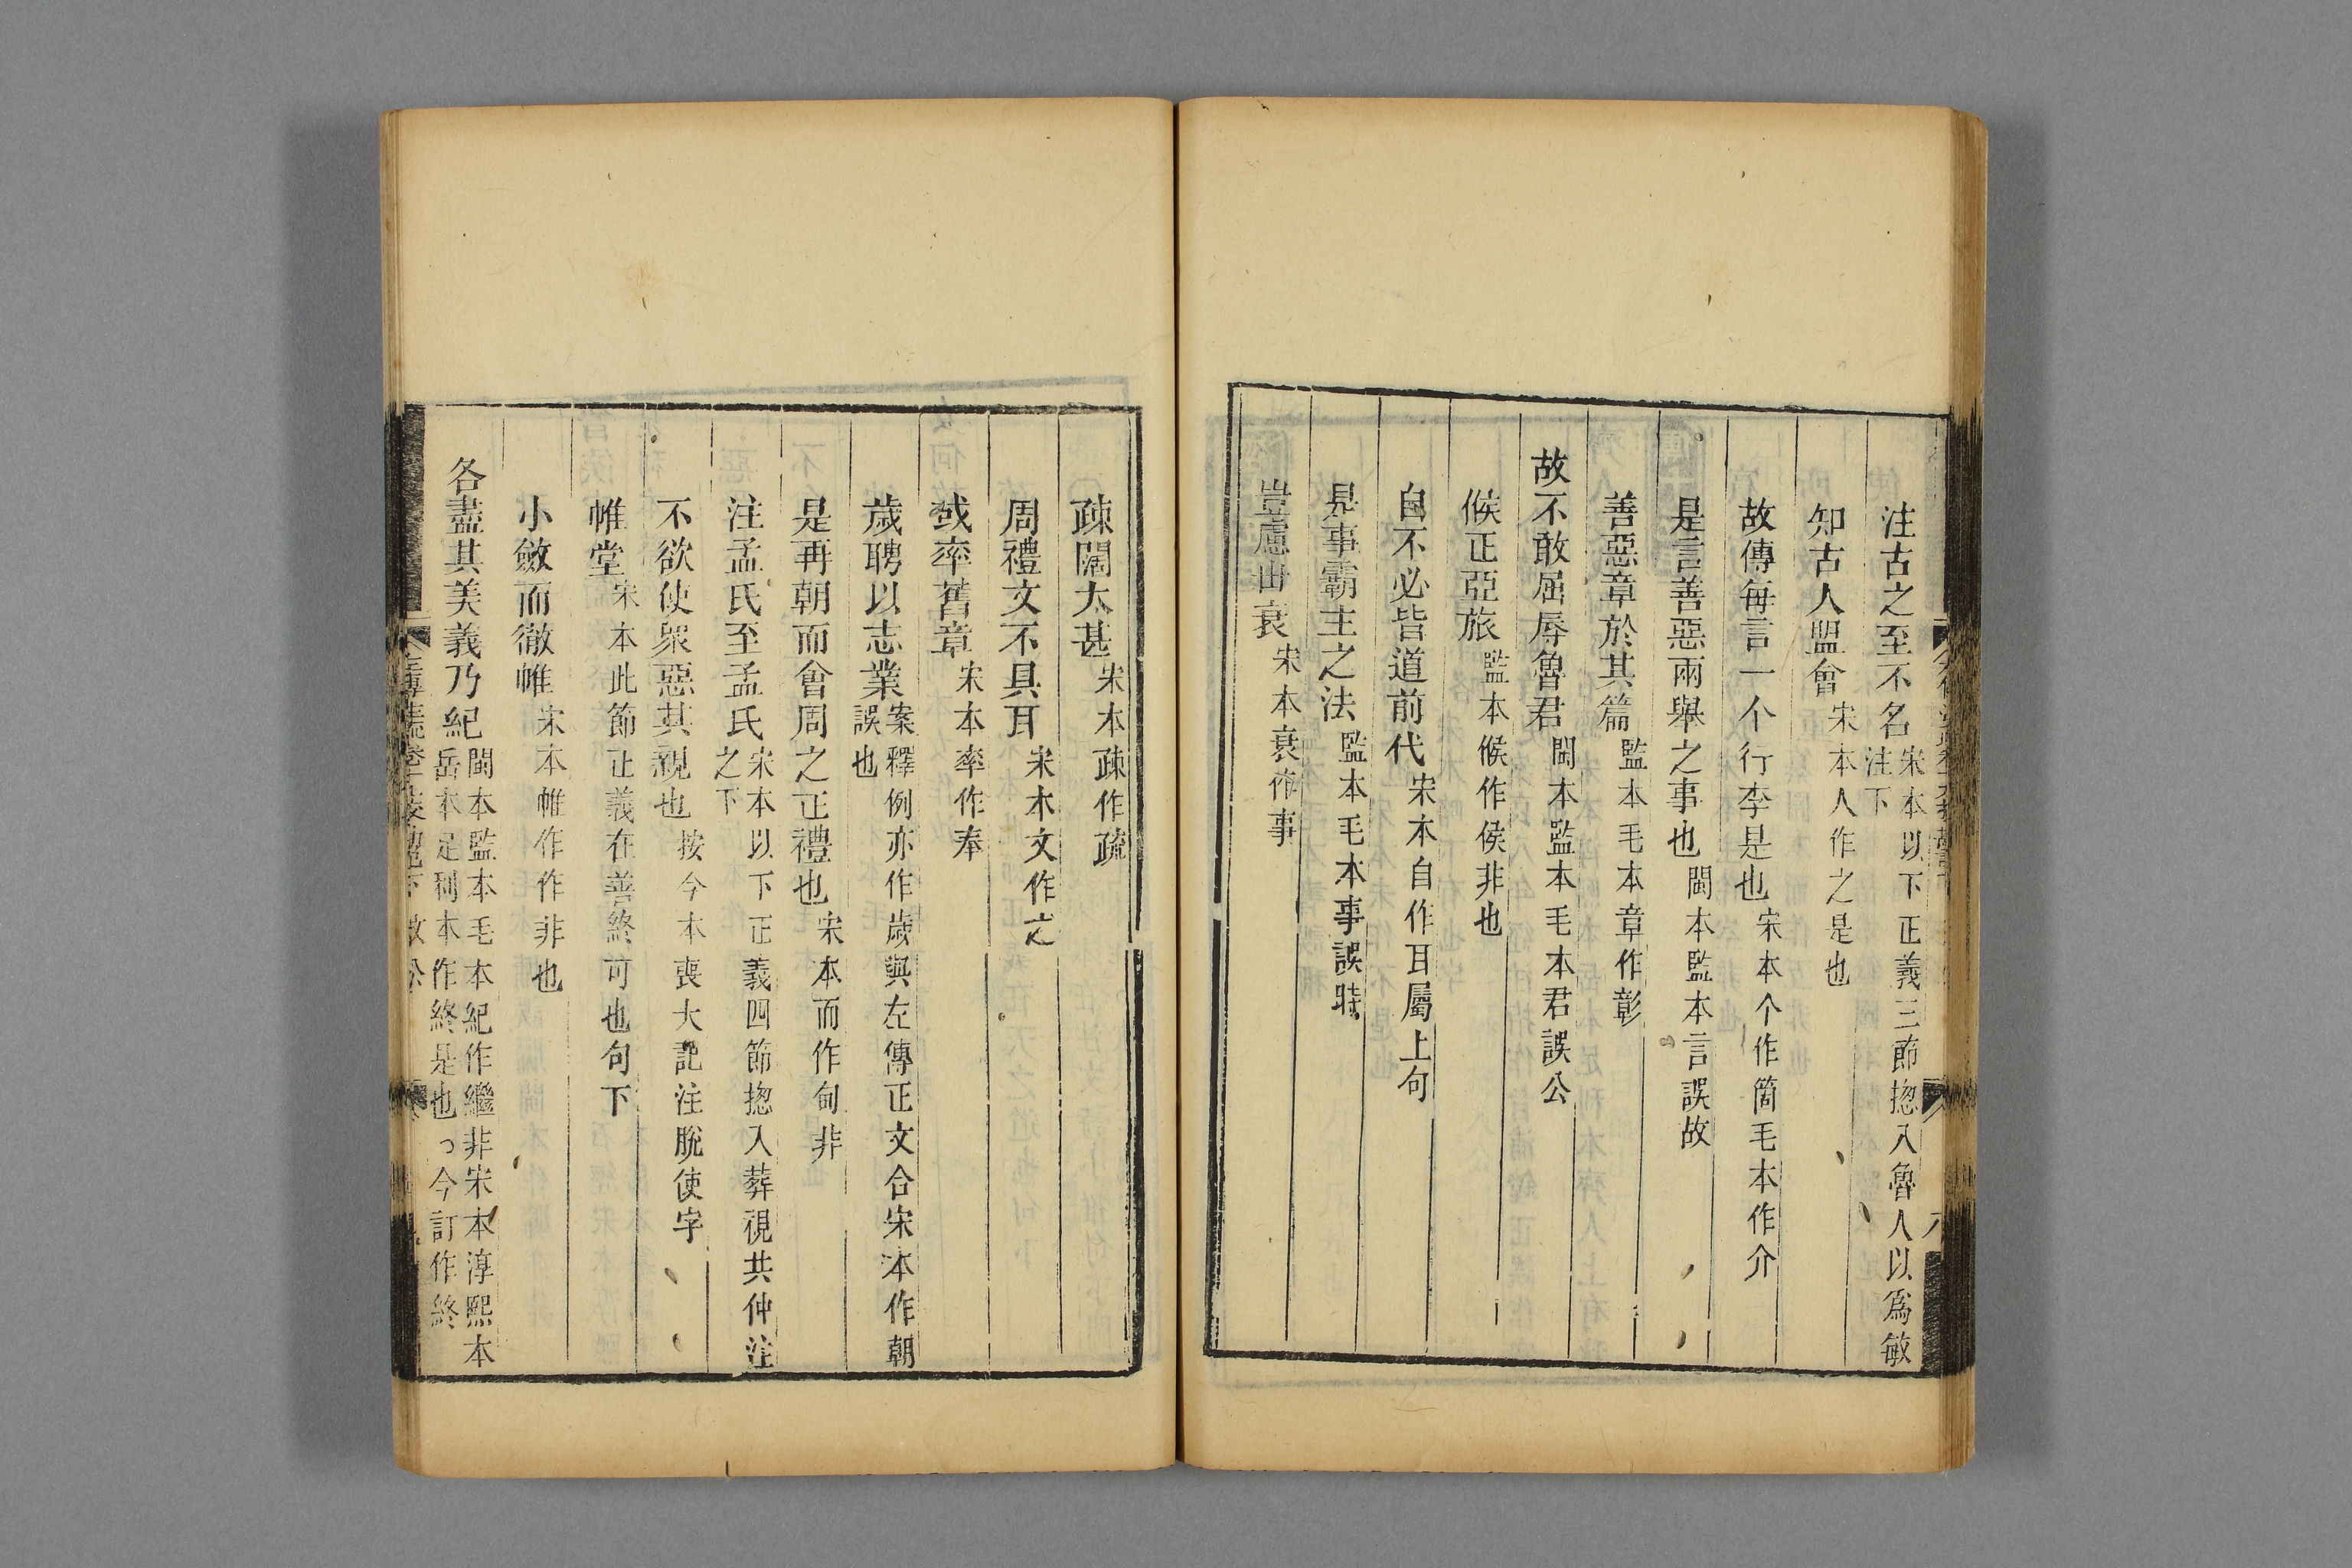 注古之至不名宋本以下正義三節揔入魯人以爲敏注下
知古人盟會宋本人作之是也
故傳每言一个行李是也宋本个作箇毛本作介
是言善惡兩舉之事也閩本監本言誤故
善惡章於其篇監本毛本章作彰
故不敢屈辱魯君閩本監本毛本君誤公
候正亞旅監本候作侯非也
自不必皆道前代宋本自作耳屬上句
是事霸主之法監本毛本事誤時
豈慮世衰宋本衰作事
疎闊大甚宋本疎作疏
周禮文不具耳宋本文作之
或率舊章宋本率作奉
歲聘以志業案釋例亦作歲與左傳正文合宋本作朝誤也
是再朝而會周之正禮也宋本而作旬非
注孟氏至孟氏宋本以下正義四節揔入葬視共仲注之下
不欲使眾惡其親也按今本喪大記注脫使字
帷堂宋本此節正義在善終可也句下
小斂而徹帷宋本帷作作非也
各盡其美義乃紀閩本監本毛本紀作繼非宋本淳熙本岳本足利本作終是也。今訂作終